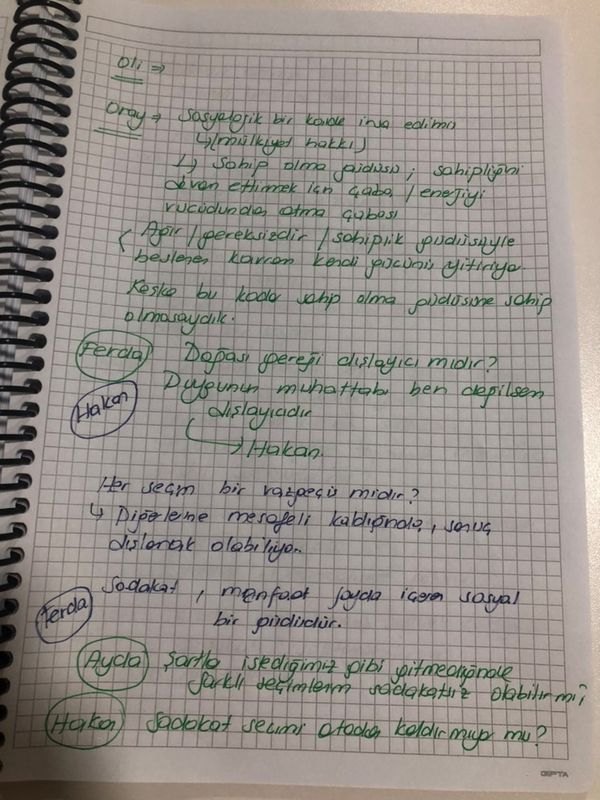 Oli →
Oray → Sosyolojik bir kaide inşa edimi
↳ (mülkiyet hakkı)
↳ Sahip olma güdüsü; sahipliğini
devam ettirmek için çaba / enerjiyi
vücudundan atma çabası
Ağır / gereksizdir / sahiplik güdüsüyle
beslenen kavram kendi gücünü yitiriyo
Keşke bu kadar sahip olma güdüsüne sahip
olmasaydık.
Ferda Doğası gereği dışlayıcı mıdır?
Hakan Duygunun muhattabı ben değilsem
dışlayıcıdır
→ Hakan
Her seçim bir vazgeçiş midir?
↳ Diğerlerine mesafeli kaldığında, sonuç
dışlamak olabiliyo.
Ferda Sadakat, menfaat fayda içeren sosyal
bir güdüdür.
Ayda Şartlar istediğimiz gibi gitmediğinde
farklı seçimlerim sadakatsiz olabilir mi?
Hakan Sadakat seçimi ortadan kaldırmıyor mu?
GIPTA